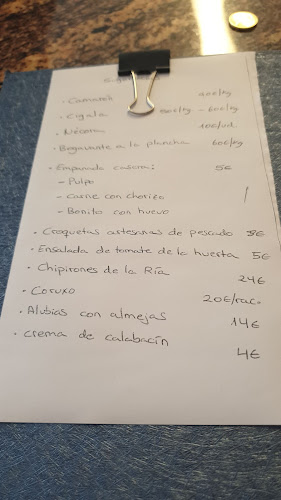 · Camarón 90€/kg
· Cigala 50€/kg - 60€/kg
· Nécora 10€/ud.
· Bogavante a la plancha 60€/kg
· Empanada casera: 5€
- Pulpo
- Carne con chorizo
- Bonito con huevo
· Croquetas artesanas de pescado 8€
· Ensalada de tomate de la huerta 5€
· Chipirones de la Ría 24€
· Coruxo 20€/rac.
· Alubias con almejas 14€
· crema de calabacín 4€